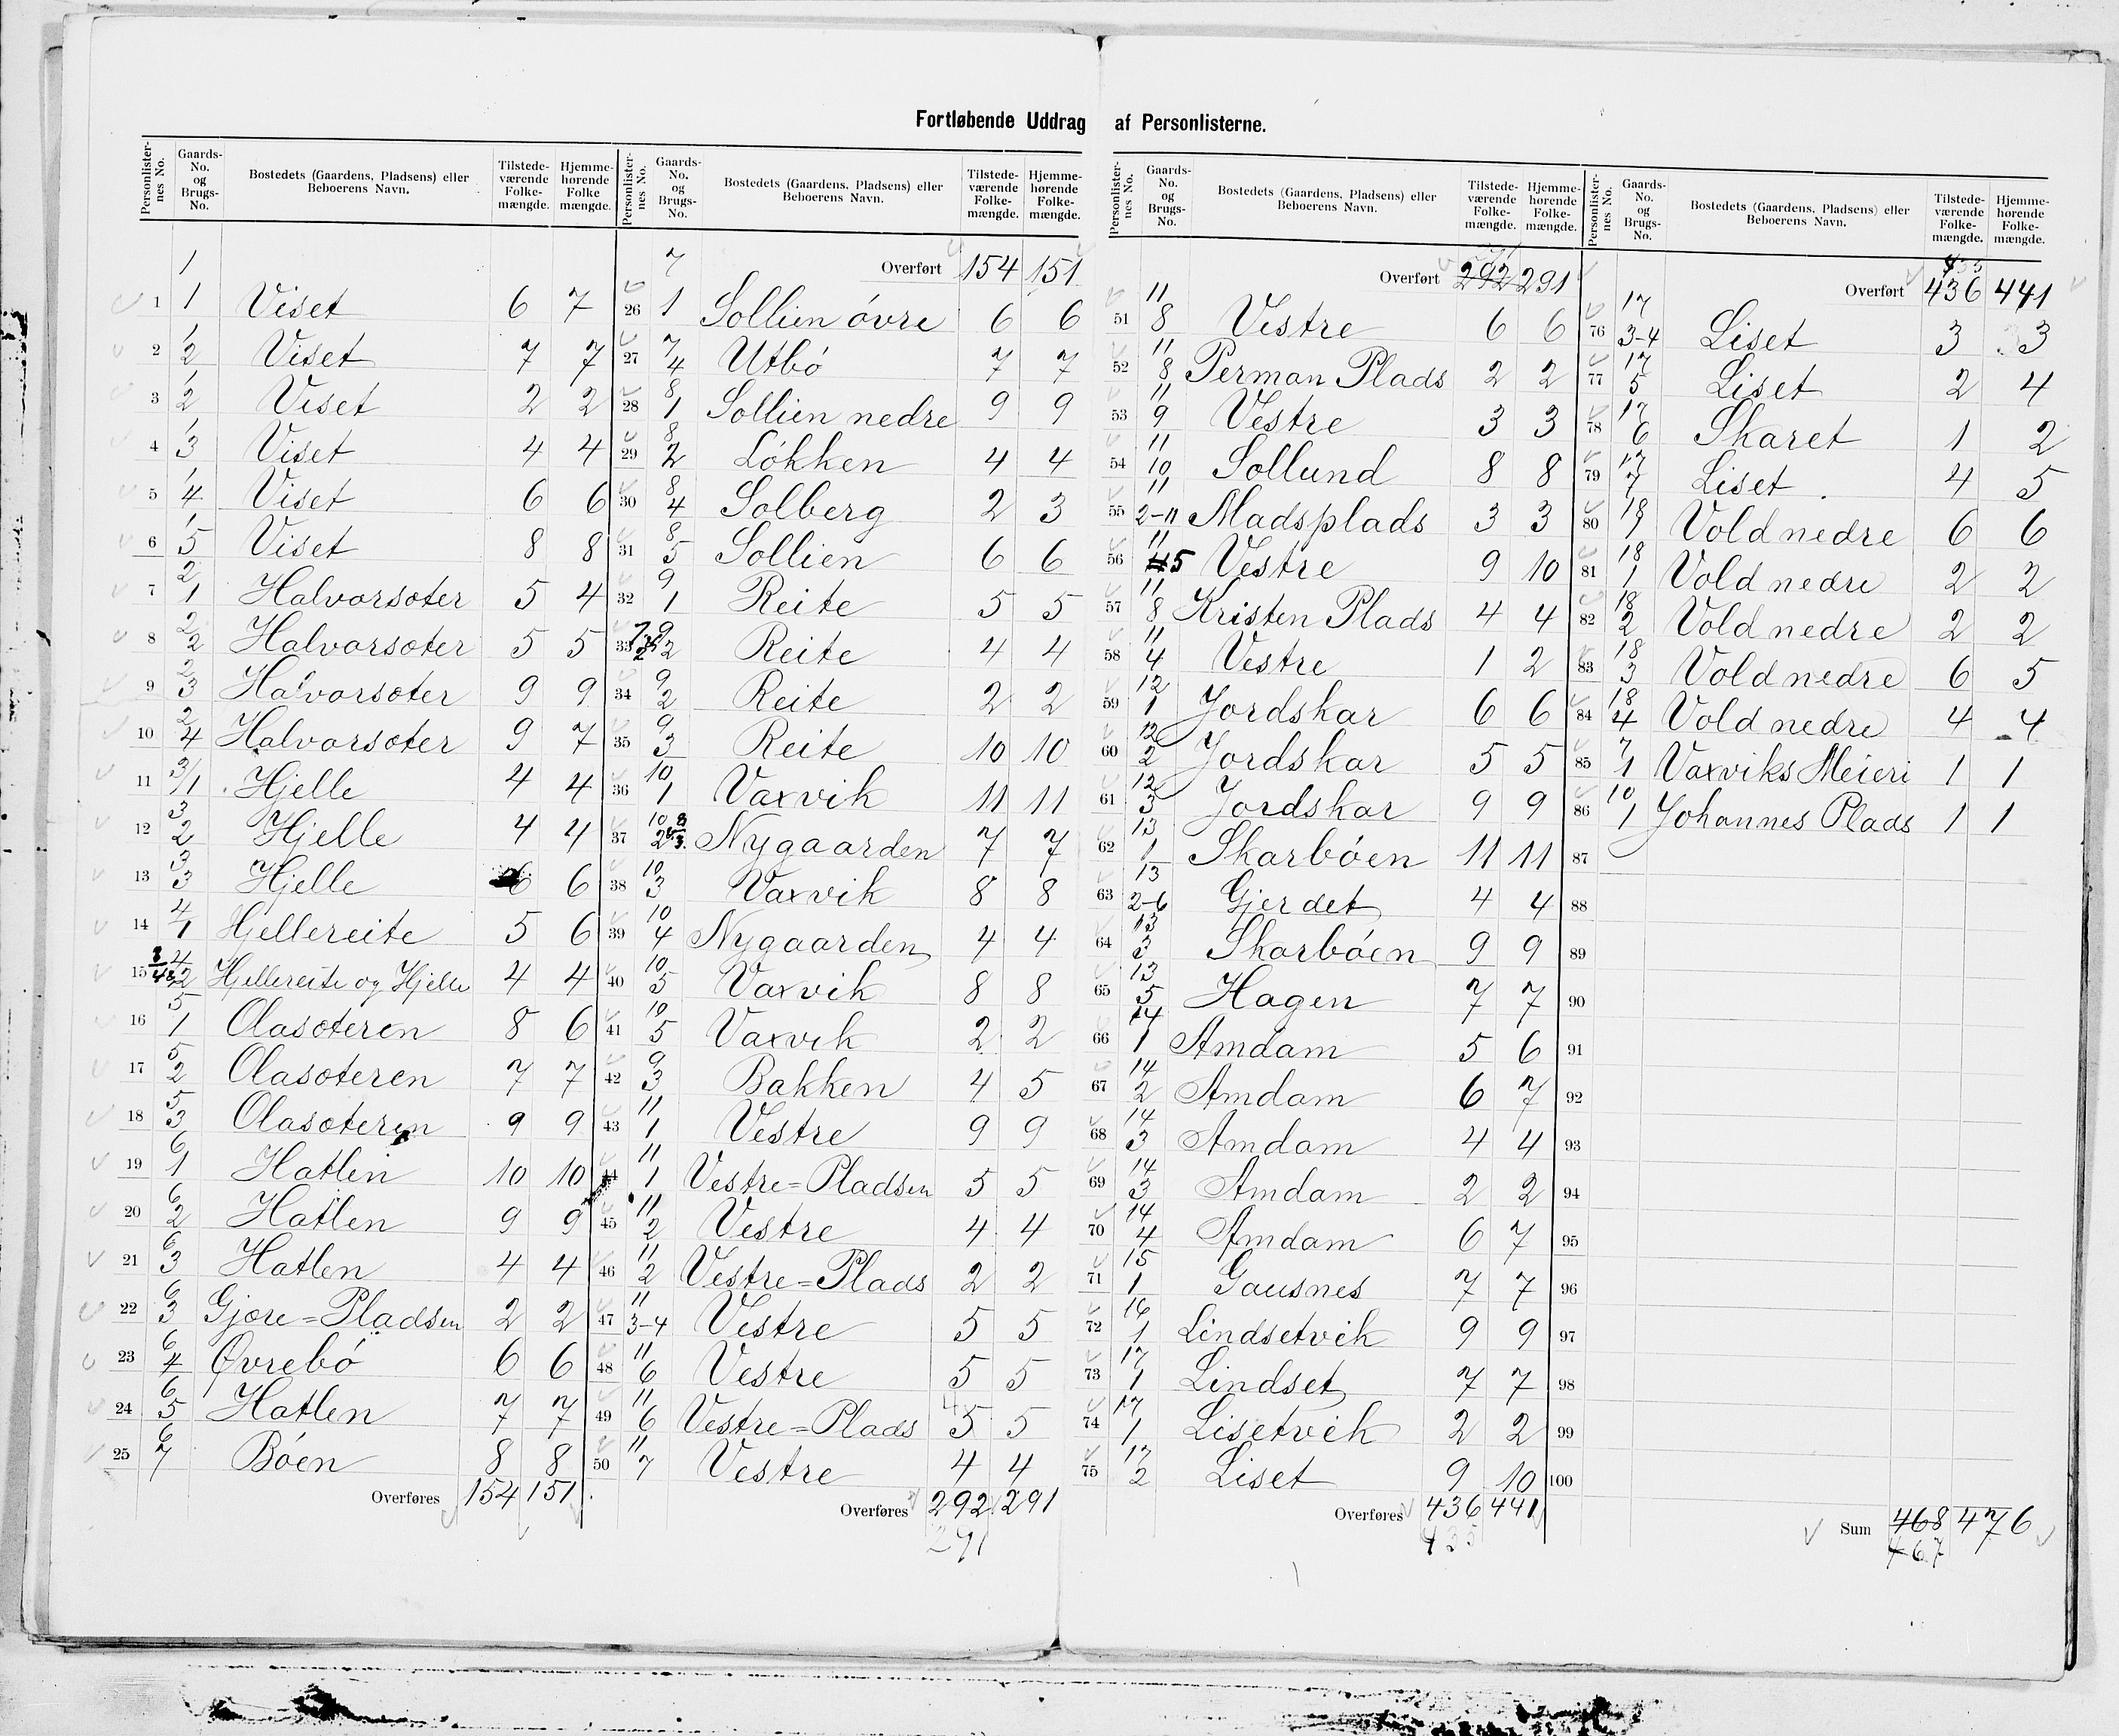 Fortløbende Uddrag af Personlisterne.
Personlister-nes No. Gaards-No. og Brugs-No. Bostedets (Gaardens, Pladsens) eller Beboerens Navn. Tilstede-værende Folke-mængde. Hjemme-hørende Folke mængde.
1 1/1 Viset 6 7
2 1/2 Viset 7 7
3 1/2 Viset 2 2
4 1/3 Viset 4 4
5 1/4 Viset 6 6
6 1/5 Viset 8 8
7 2/1 Halvorsæter 5 4
8 2/2 Halvorsæter 5 5
9 2/3 Halvorsæter 9 9
10 2/4 Halvorsæter 9 7
11 3/1 Hjelle 4 4
12 3/2 Hjelle 4 4
13 3/3 Hjelle 6 6
14 4/1 Hjellereite 5 6
15 4/2 Hjellereite og Hjelle 4 4
16 5/1 Olasæteren 8 6
17 5/2 Olasæteren 7 7
18 5/3 Olasæteren 9 9
19 6/1 Hatlen 10 10
20 6/2 Hatlen 9 9
21 6/3 Hatlen 4 4
22 6/3 Gjære=Pladsen 2 2
23 6/4 Øvrebö 6 6
24 6/5 Hatlen 7 7
25 6/7 Böen 8 8
Overføres 154 151
Personlister-nes No. Gaards-No. og Brugs-No. Bostedets (Gaardens, Pladsens) eller Beboerens Navn. Tilstede-værende Folke-mængde. Hjemme-hørende Folke-mængde.
Overført 154 151
26 7/1 Sollien övre 6 6
27 7/4 Utbö 7 7
28 8/1 Sollien nedre 9 9
29 8/2 Lökken 4 4
30 8/4 Solberg 2 3
31 8/5 Sollien 6 6
32 9/1 Reite 5 5
33 9/2 Reite 4 4
34 9/2 Reite 2 2
35 9/3 Reite 10 10
36 10/1 Vaxvik 11 11
37 10/2 8/3 Nygaarden 7 7
38 10/3 Vaxvik 8 8
39 10/4 Nygaarden 4 4
40 10/5 Vaxvik 8 8
41 10/5 Vaxvik 2 2
42 9/3 Bakken 4 5
43 11/1 Vestre 9 9
44 11/1 Vestre=Pladsen 5 5
45 11/2 Vestre 4 4
46 11/2 Vestre=Plads 2 2
47 11/3-4 Vestre 5 5
48 11/6 Vestre 5 5
49 11/6 Vestre=Plads 5 5
50 11/7 Vestre 4 4
Overføres 292 291
291
Personlister-nes No. Gaards-No. og Brugs-No. Bostedets (Gaardens, Pladsens) eller Beboerens Navn. Tilstede-værende Folke-mængde. Hjemme-hørende Folke-mængde.
Overført 292 291
51 11/8 Vestre 6 6
52 11/8 Perman Plads 2 2
53 11/9 Vestre 3 3
54 11/10 Sollund 8 8
55 11/2-11 Madsplads 3 3
56 11/5 Vestre 9 10
57 11/8 Kristen Plads 4 4
58 11/4 Vestre 1 2
59 12/1 Jordskar 6 6
60 12/2 Jordskar 5 5
61 12/3 Jordskar 9 9
62 13/1 Skarböen 11 11
63 13/2-6 Gjerdet 4 4
64 13/3 Skarböen 9 9
65 13/5 Hagen 7 7
66 14/1 Amdam 5 6
67 14/2 Amdam 6 7
68 14/3 Amdam 4 4
69 14/3 Amdam 2 2
70 14/4 Amdam 6 7
71 15/1 Gausnes 7 7
72 16/1 Lindsetvik 9 9
73 17/1 Lindset 7 7
74 17/1 Lisetvik 2 2
75 17/2 Liset 9 10
Overføres 436 441
435
Personlister-nes No. Gaards-No. og Brugs-No. Bostedets (Gaardens, Pladsens) eller Beboerens Navn. Tilstede-værende Folke-mængde. Hjemme-hørende Folke-mængde.
Overført 436 441
76 17/3-4 Liset 3 3
77 17/5 Liset 2 4
78 17/6 Skaret 1 2
79 17/7 Liset 4 5
80 18/1 Vold nedre 6 6
81 18/1 Vold nedre 2 2
82 18/2 Vold nedre 2 2
83 18/3 Vold nedre 6 5
84 18/4 Vold nedre 4 4
85 7/1 Vaxviks Meieri 1 1
86 10/1 Johannes Plads 1 1
87
88
89
90
91
92
93
94
95
96
97
98
99
100
Sum 468 476
467